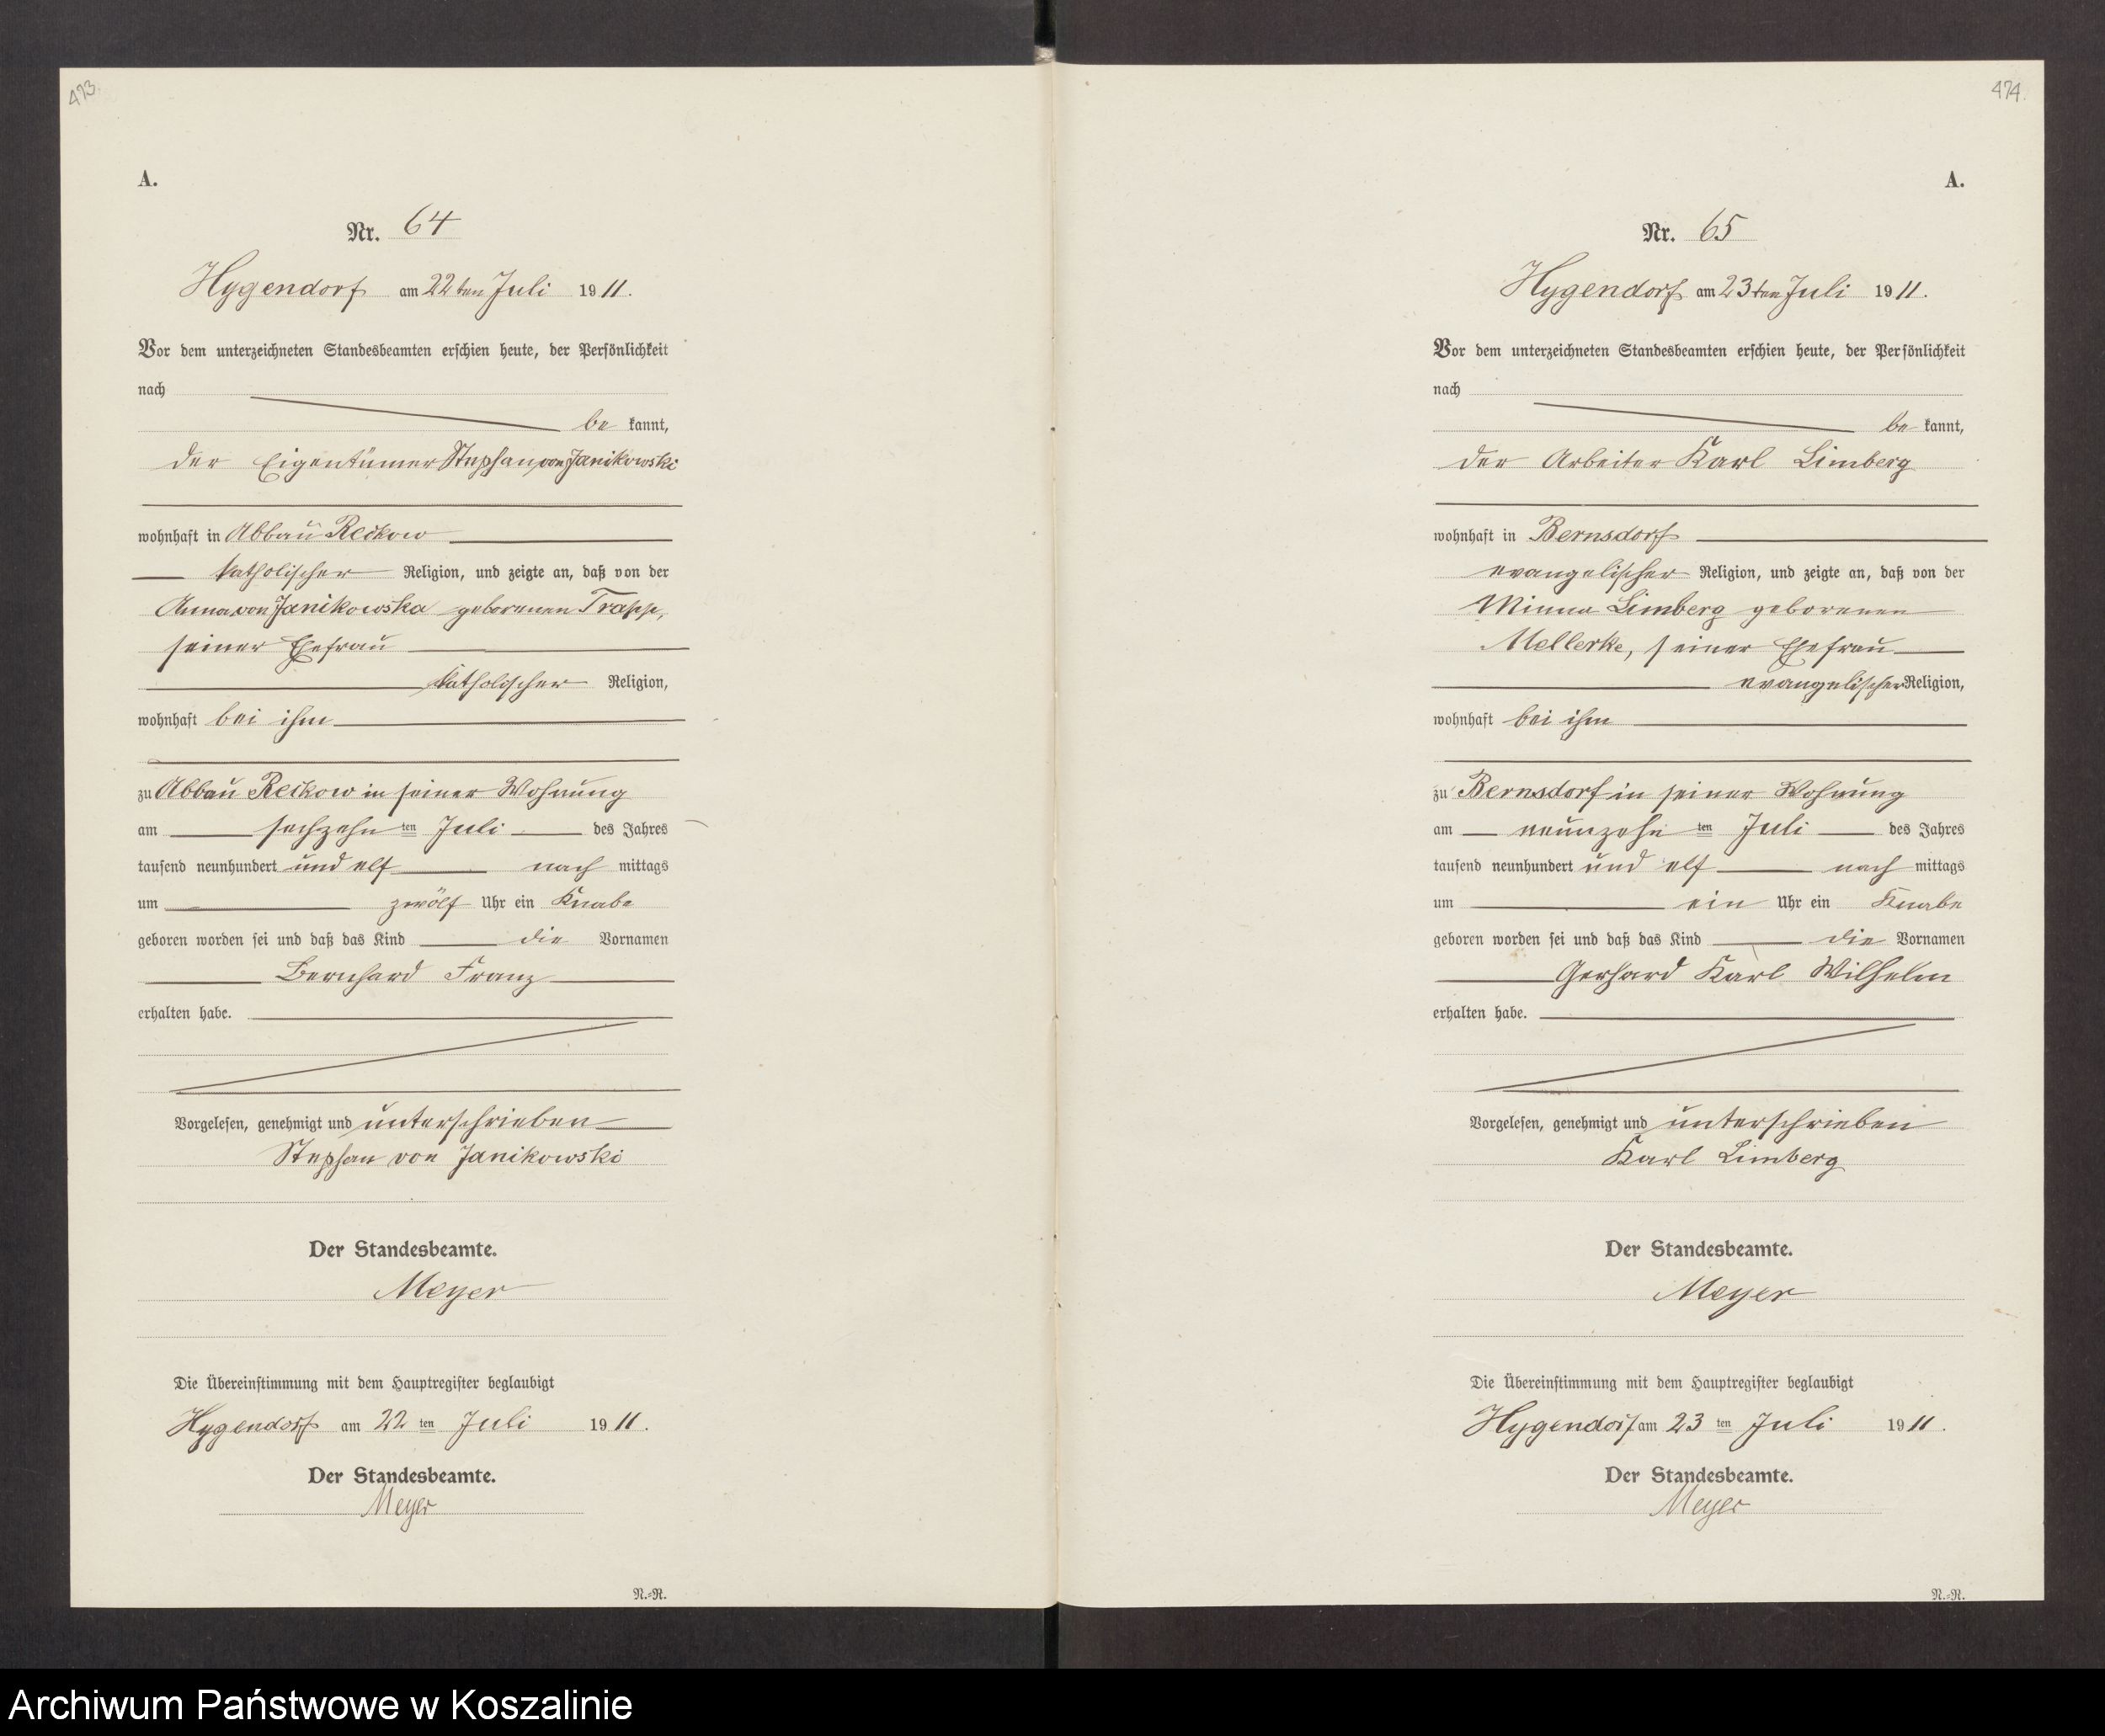 473.
A.
Nr. 64
Hygendorf am 22ten Juli 1911.
Vor dem unterzeichneten Standesbeamten erschien heute, der Persönlichkeit
nach
be kannt,
der Eigentümer Stephan von Janikowski
wohnhaft in Abbau Reckow
katholischer Religion, und zeigte an, daß von der
Anna von Janikowska geborenen Trapp,
seiner Ehefrau
katholischer Religion,
wohnhaft bei ihm
zu Abbau Reckow in seiner Wohnung
am sechzehn ten Juli des Jahres
tausend neunhundert und elf nach mittags
um zwölf Uhr ein Knabe
geboren worden sei und daß das Kind die Vornamen
Bernhard Franz
erhalten habe.
Vorgelesen, genehmigt und unterschrieben
Stephan von Janikowski
Der Standesbeamte.
Meyer
Die Übereinstimmung mit dem Hauptregister beglaubigt
Hygendorf am 22 ten Juli 1911.
Der Standesbeamte.
Meyer
N.=R.
474.
A.
Nr. 65
Hygendorf am 23ten Juli 1911.
Vor dem unterzeichneten Standesbeamten erschien heute, der Persönlichkeit
nach
be kannt,
der Arbeiter Karl Limberg
wohnhaft in Bernsdorf
evangelischer Religion, und zeigte an, daß von der
Minna Limberg geborenen
Mellerke, seiner Ehefrau
evangelischer Religion,
wohnhaft bei ihm
zu Bernsdorf in seiner Wohnung
am neunzehn ten Juli des Jahres
tausend neunhundert und elf nach mittags
um ein Uhr ein Knabe
geboren worden sei und daß das Kind die Vornamen
Gerhard Karl Wilhelm
erhalten habe.
Vorgelesen, genehmigt und unterschrieben
Karl Limberg
Der Standesbeamte.
Meyer
Die Übereinstimmung mit dem Hauptregister beglaubigt
Hygendorf am 23 ten Juli 1911.
Der Standesbeamte.
Meyer
N.=R.
Archiwum Państwowe w Koszalinie